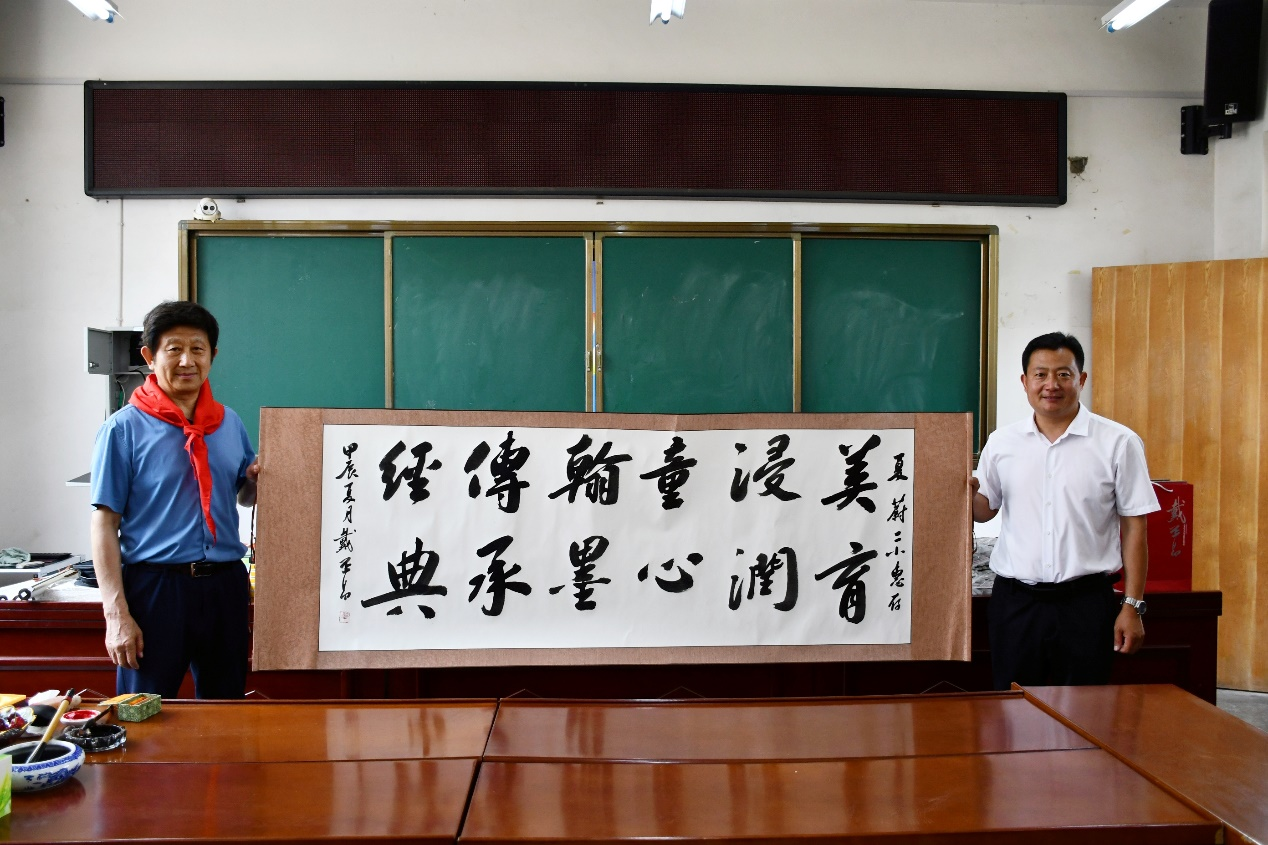 夏蔚二小惠存
美育
浸潤
童心
翰墨
傳承
經典
甲辰夏月戴
戴